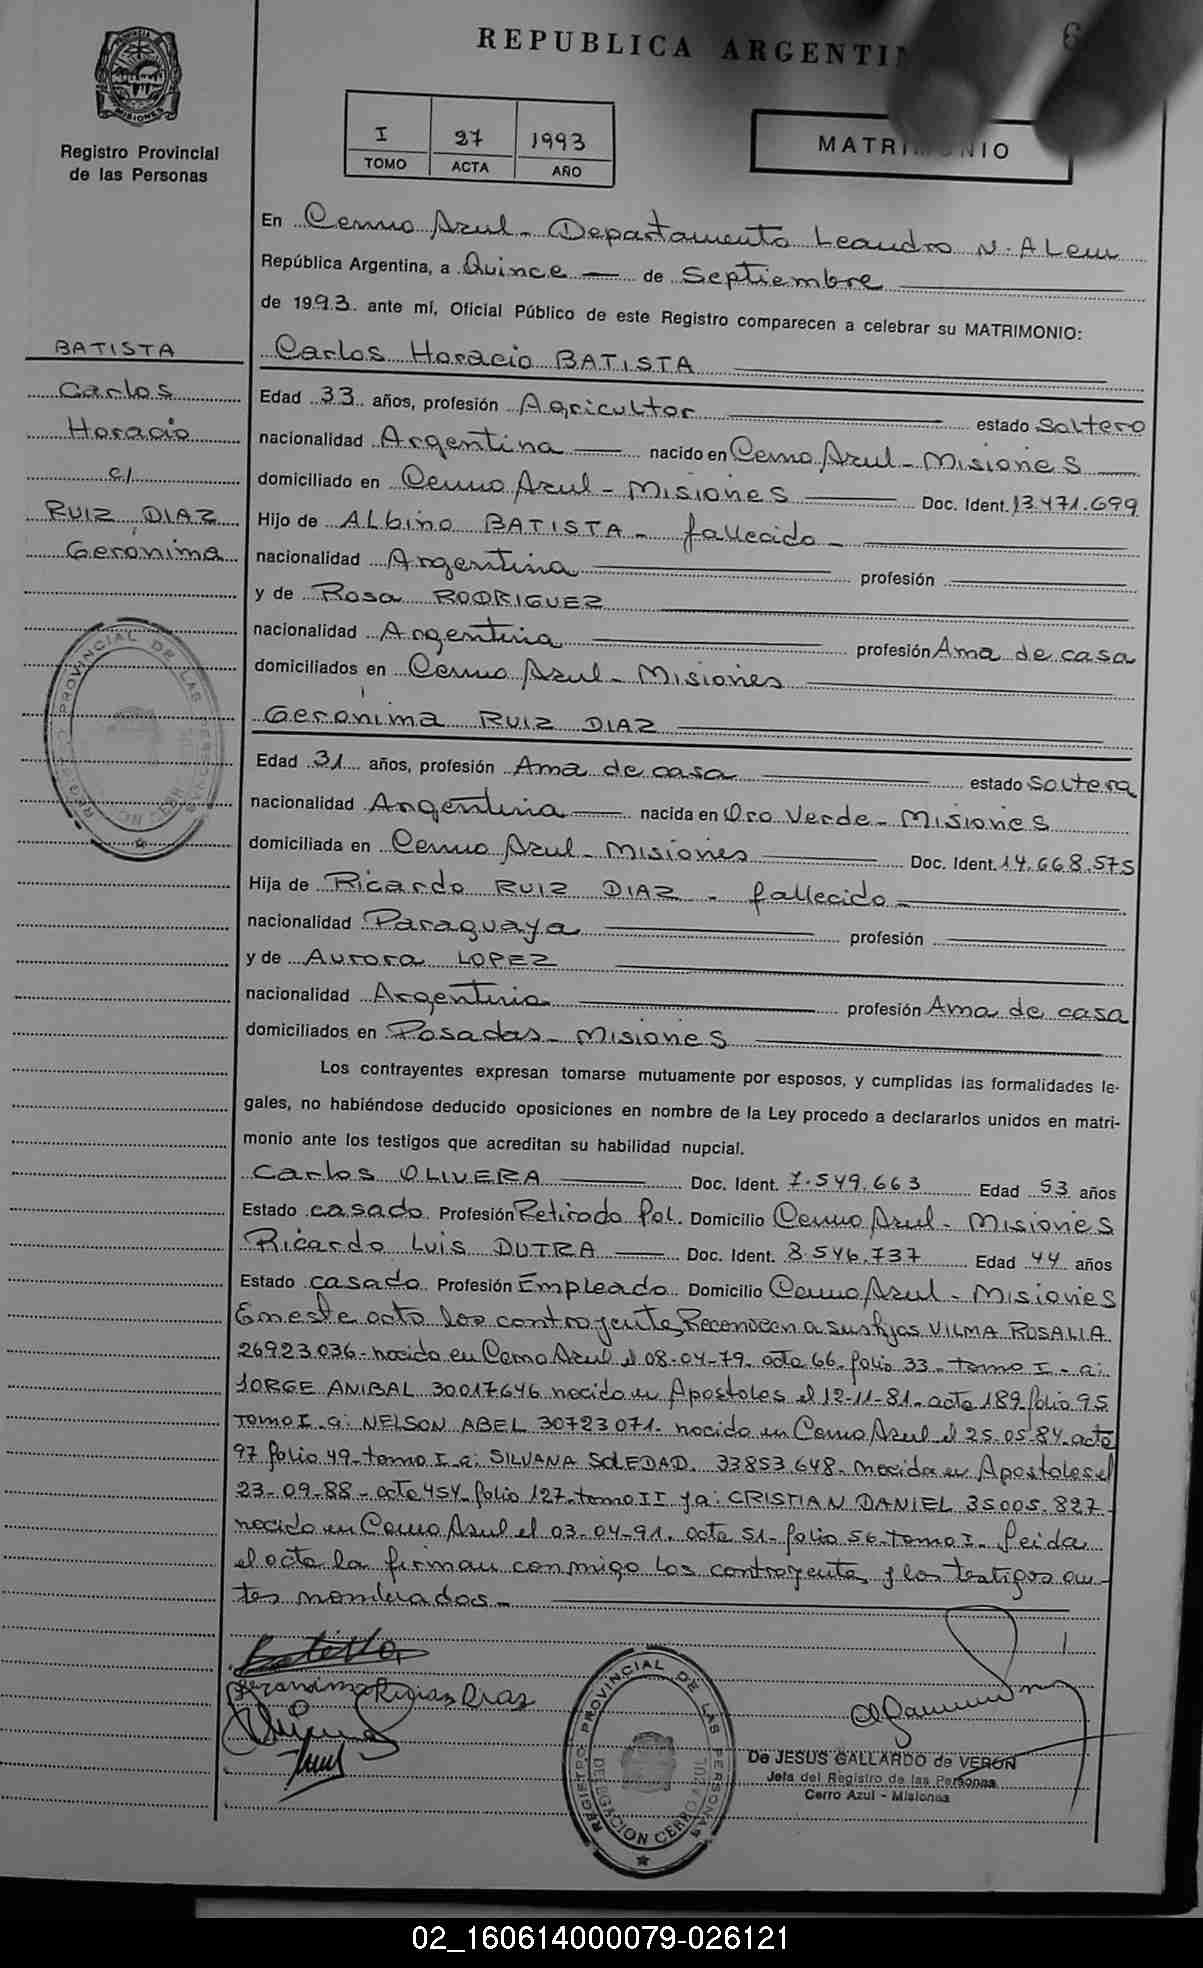 REPUBLICA ARGENTIN
6
PROVINCIA
MISIONES
Registro Provincial
de las Personas
I 27 1993
TOMO ACTA AÑO
MATRIMONIO
En Cerro Azul - Departamento Leandro N. ALem
República Argentina, a Quince — de Septiembre
de 1993. ante mí, Oficial Público de este Registro comparecen a celebrar su MATRIMONIO:
Carlos Horacio BATISTA
BATISTA
Carlos
Horacio
c/
RUIZ DIAZ
Gerónima
Edad 33 años, profesión Agricultor estado Soltero
nacionalidad Argentina — nacido en Cerro Azul - Misiones
domiciliado en Cerro Azul - Misiones Doc. Ident. 13.471.699
Hijo de ALbino BATISTA - fallecido -
nacionalidad Argentina profesión
y de Rosa RODRIGUEZ
nacionalidad Argentina profesión Ama de casa
domiciliados en Cerro Azul - Misiones
Gerónima RUIZ DIAZ
Edad 31 años, profesión Ama de casa estado Soltera
nacionalidad Argentina nacida en Oro Verde - Misiones
domiciliada en Cerro Azul - Misiones Doc. Ident. 14.668.575
Hija de Ricardo RUIZ DIAZ - fallecido -
nacionalidad Paraguaya profesión
y de Aurora LOPEZ
nacionalidad Argentina profesión Ama de casa
domiciliados en Posadas - Misiones
Los contrayentes expresan tomarse mutuamente por esposos, y cumplidas las formalidades le-
gales, no habiéndose deducido oposiciones en nombre de la Ley procedo a declararlos unidos en matri-
monio ante los testigos que acreditan su habilidad nupcial.
Carlos OLIVERA Doc. Ident. 7.549.663 Edad 53 años
Estado casado Profesión Retirado Pol. Domicilio Cerro Azul - Misiones
Ricardo Luis DUTRA Doc. Ident. 8.546.737 Edad 44 años
Estado casado Profesión Empleado Domicilio Cerro Azul - Misiones
En este acto los contrayentes Reconocen a sus hijos VILMA ROSALIA
26923036 - nacida en Cerro Azul el 08-04-79. acta 66. folio 33 - tomo I - a:
JORGE ANIBAL 30017646 nacido en Apostoles el 12-11-81 - acta 189 folio 95
Tomo I a: NELSON ABEL 30723071. nacido en Cerro Azul el 25-05-84. acta
97 folio 49 - tomo I a: SILVANA SOLEDAD. 33853.648. nacida en Apostoles el
23-09-88 - acta 454 - folio 127 - tomo II y a: CRISTIAN DANIEL 35005.827
nacido en Cerro Azul el 03-04-91. acta 51 - folio 56 - Tomo I. Leida
el acta la firman conmigo los contrayentes y los testigos an-
tes nombrados -
Batista
Geronima Ruiz Diaz
REGISTRO PROVINCIAL DE LAS PERSONAS
DELEGACION CERRO AZUL
De JESUS GALLARDO de VERON
Jefa del Registro de las Personas
Cerro Azul - Misiones
02_160614000079-026121